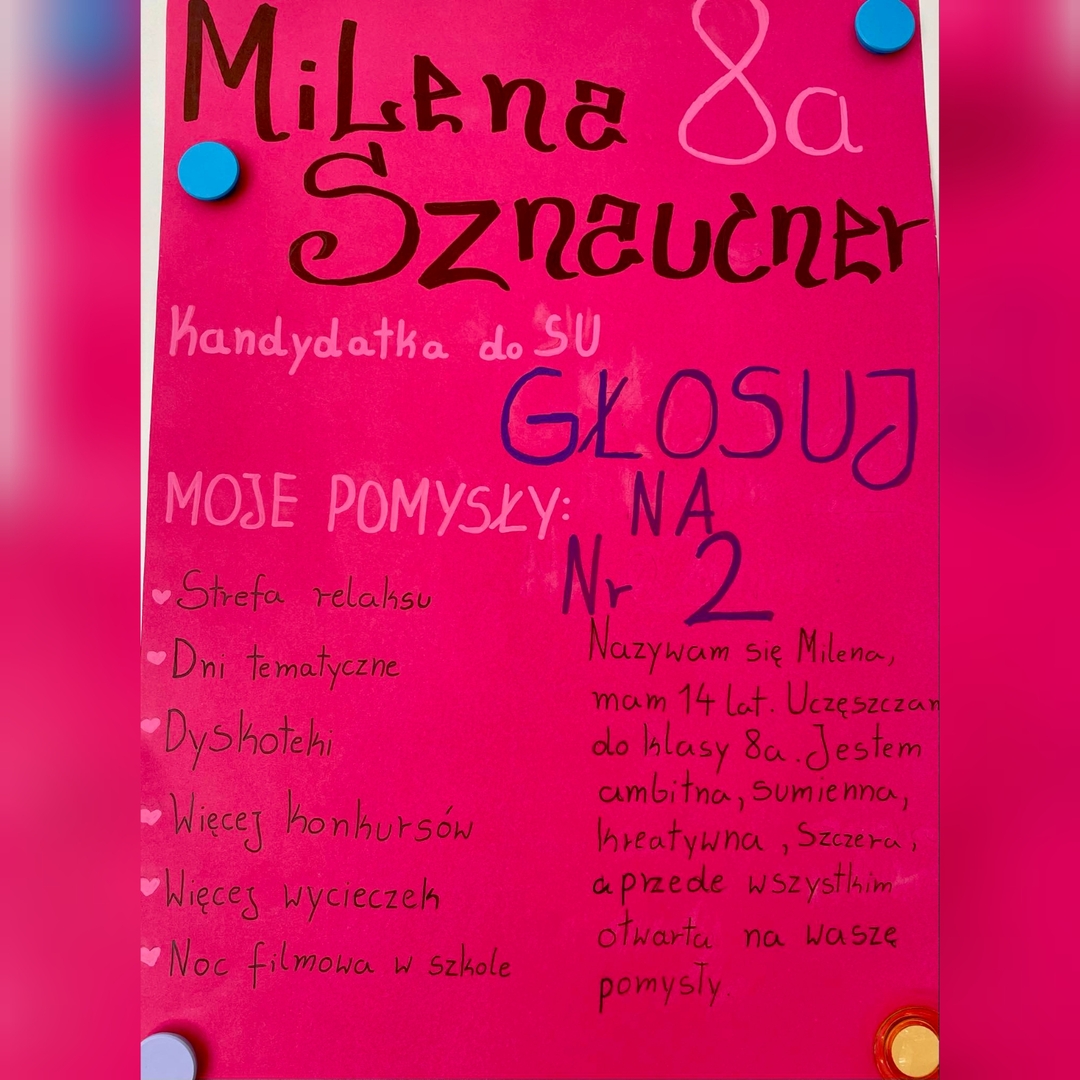 Milena 8a
Sznaucner
Kandydatka do SU
GŁOSUJ
NA
Nr 2
MOJE POMYSŁY:
Strefa relaksu
Dni tematyczne
Dyskoteki
Więcej konkursów
Więcej wycieczek
Noc filmowa w szkole
Nazywam się Milena,
mam 14 lat. Uczęszczam
do klasy 8a. Jestem
ambitna, sumienna,
kreatywna, Szczera,
a przede wszystkim
otwarta na waszę
pomysły.